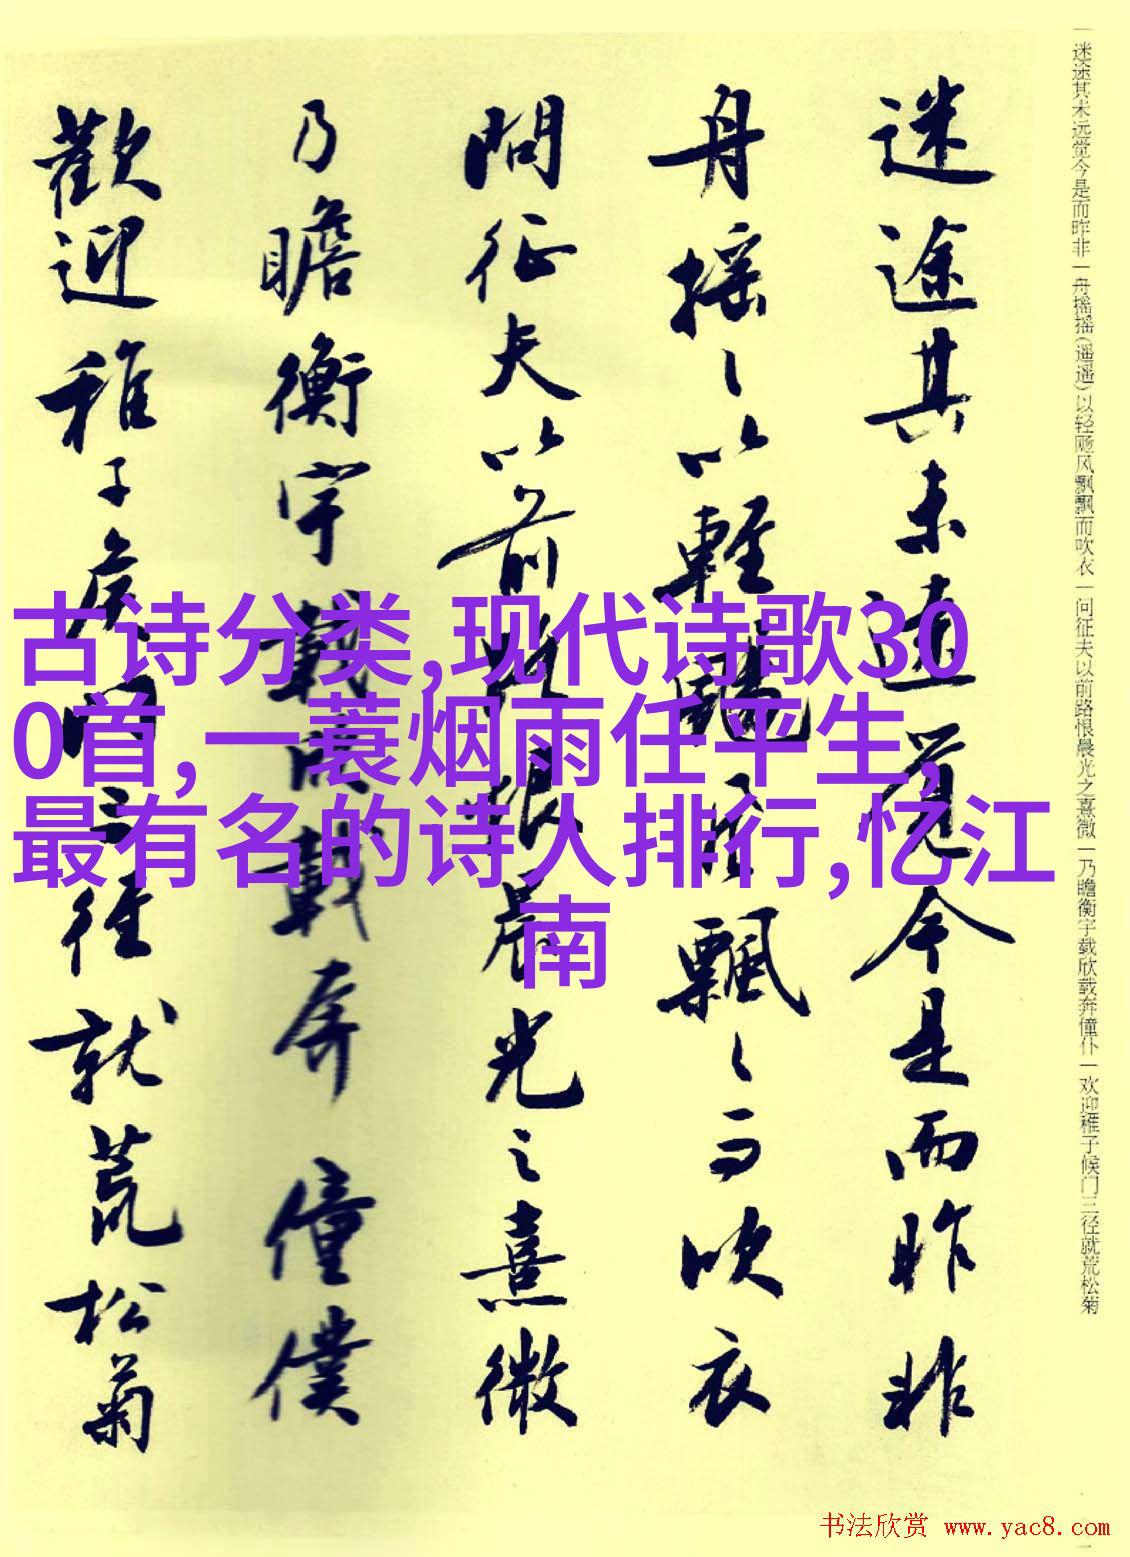 迷途其未远觉今是而昨非
舟摇〻以轻飏风飘〻而吹衣
問征夫以前路恨晨光之熹微
乃瞻衡宇載欣載奔僮僕
歡迎稚子候門三徑就荒松菊
一迷途其未远觉今是而昨非一舟摇摇(遥遥)以轻飏风飘飘而吹衣一问征夫以前路恨晨光之熹微一乃瞻衡宇载欣载奔僮仆一欢迎稚子候门三径就荒松菊
古诗分类,现代诗歌30
0首,一蓑烟雨任平生,
最有名的诗人排行,忆江
南
书法欣赏 www.yac8.com